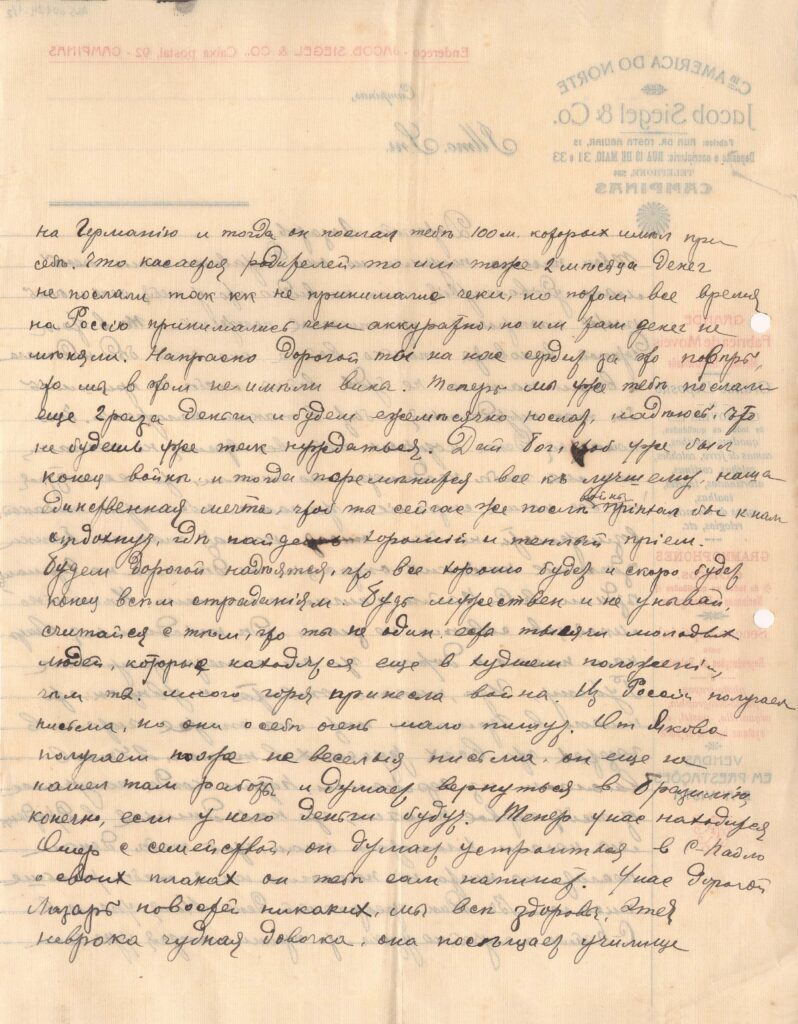 на Германію и тогда он послал тебѣ 100 м. которых имѣл при
себѣ. Что касается родителей, то им тоже 2 мѣсяца денег
не послали так кк не принимались чеки, но потом все время
на Россію принимались чеки аккуратно, но им там денег не
мѣняли. Напрасно дорогой ты на нас сердиш за это повѣрь,
что мы в этом не имѣли вина. Теперь мы уже тебѣ послали
еще 2 раза деньги и будем ежемѣсячно послат, надѣюсь, что
не будешь уже так нуждаться. Дай Бог, чтоб уже был
конец войны и тогда перемѣнится все къ лучшему, наша
единственная мечта, чтоб ты сейчас же послѣ войны пріѣхал бы к нам
отдохнут, гдѣ найдешь хорошій и теплый пріем.
Будем дорогой надѣятся, что все хорошо будет и скоро будет
конец всѣм страданіям. Будь мужествен и не унывай,
считайся с тѣм, что ты не один, есть тысячи молодых
людей, которые находятся еще в худшем положеніи,
чѣм ты. много горя принесла война. Из Россіи получаем
письма, но они о себѣ очень мало пишут. От Якова
получаем тоже не веселыя письма, он еще не
нашел там работы и думает вернуться в Бразилію
конечно, если у него деньги будут. Тепер у нас находится
с семейством, он думает устроиться в С-Пауло
о своих планах он тебѣ сам напишет. У нас дорогой
Лазарь новостей никаких, мы всѣ здоровы.
невроко чудная девочка, она посѣщает училище